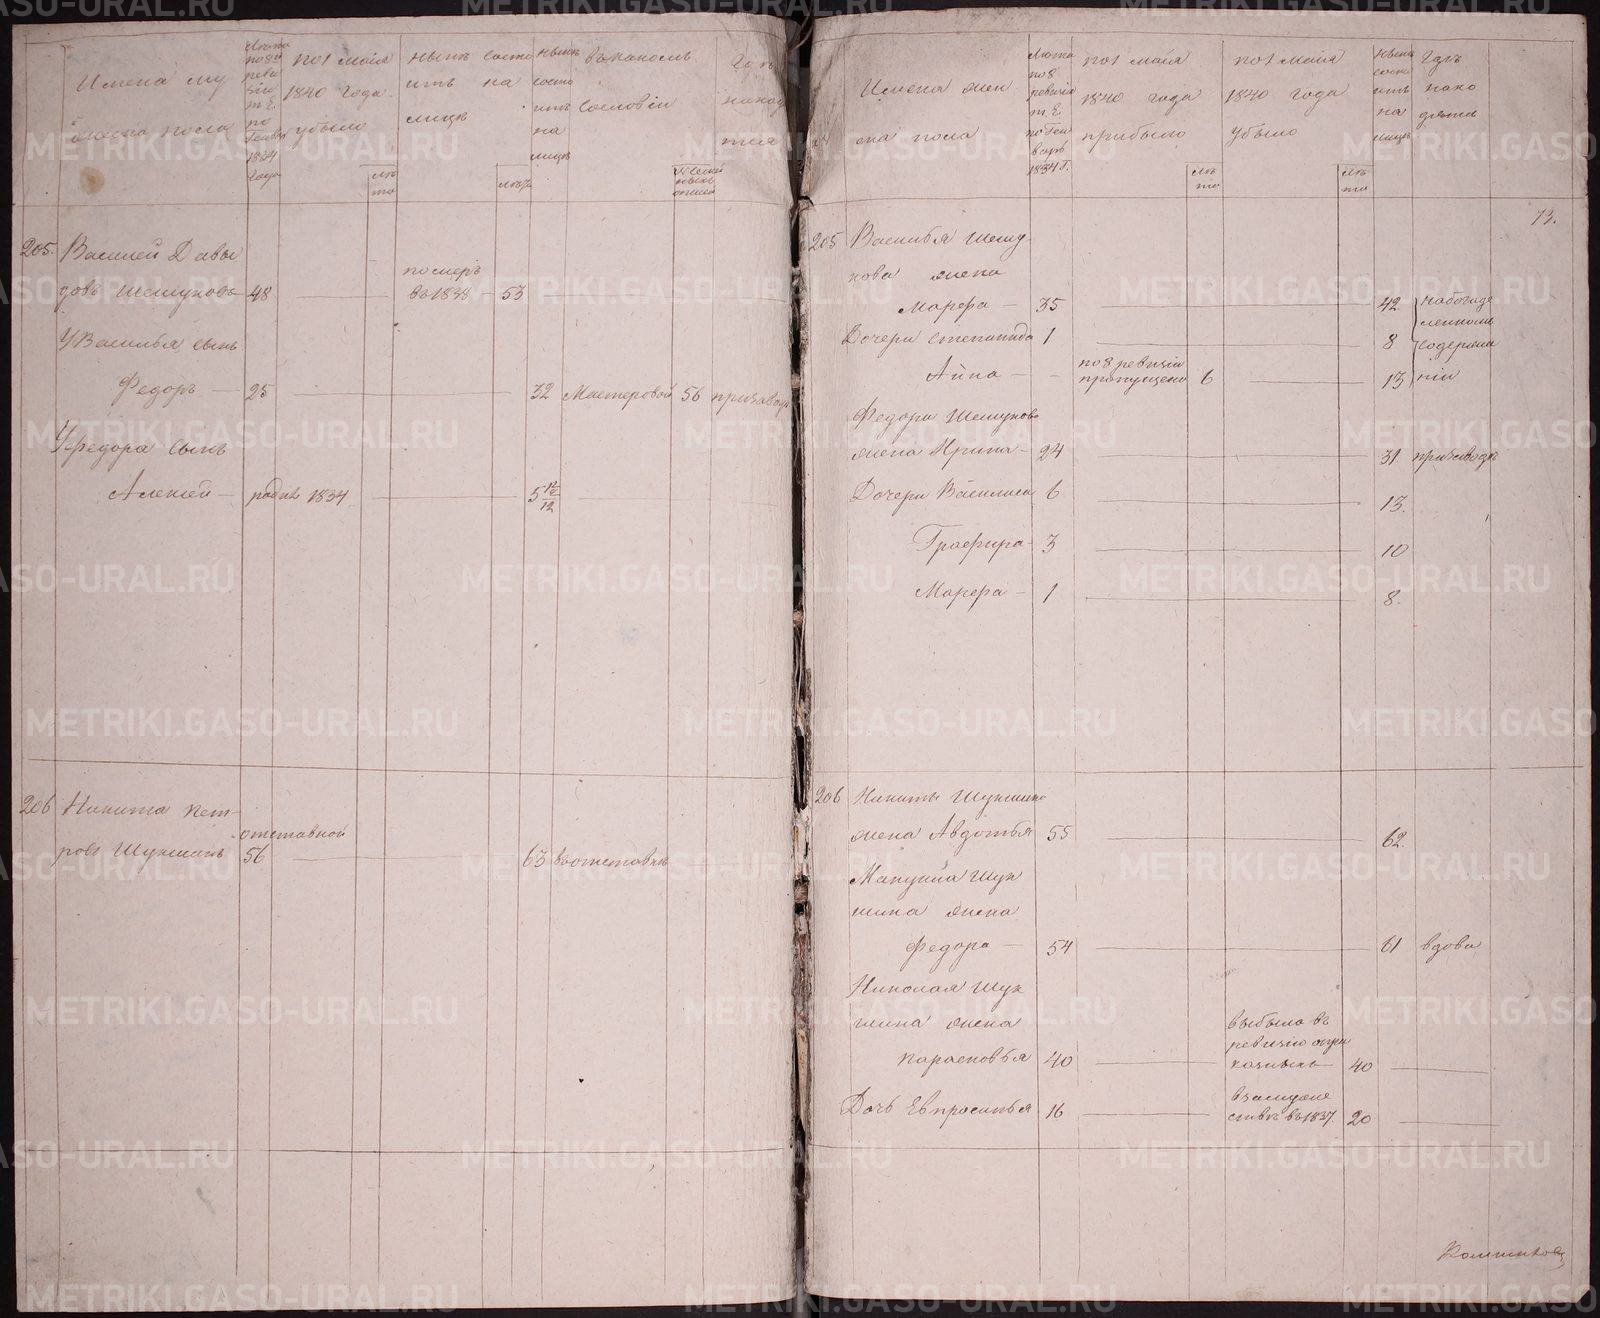 Имена му
жеска пола
Лѣта
по 8й
реви
зіи
т. Е.
по
Генварь
1834
года
по 1 Мая
1840 года
убыло
лѣ
та
нынѣ состо
итъ на
лицѣ
лѣта
нынѣ
состо
итъ
на
лицѣ
въ какомъ
сословіи
Гдѣ
наход
тся
205. Василей Давы
довъ Шешуковъ 48
померъ
въ 1838 53
У Василья сынъ
Федоръ 25 32 Мастеровой 56 при заводе
У Федора сынъ
Алексей родил 1834 5 12/12
206 Никита Пет
отставной
ровъ Шукшинъ 56 63 въ отставкѣ
Имена жен
ска пола
Лѣта
по 8
ревизіи
т. Е.
по Ген
варь
1834 г.
по 1 Мая
1840 года
прибыло
лѣ
та
по 1 Мая
1840 года
убыло
лѣ
та
нынѣ
состо
итъ
на
лицѣ
Гдѣ
нахо
дятся
73.
205 Василья Шешу
кова жена
Марфа 35 42 на богаде
ленномъ
Дочери Степанида 1 8 содержа
по 8 ревизіи
Анна пропущена 6 13 ніи
Федора Шешукова
жена Ирина 24 31 при заводе
Дочери Василиса 6 13.
Графира 3 10
Марфа 1 8.
206 Никиты Шукшина
жена Авдотья 55 62.
Шук
шина жена
Федора 54 61 вдова
Николая Шук
шина жена
выбыла въ
ревизію
Парасковья 40 40
Дочь Евпрасинья 16
взамуже
ствѣ въ 1837. 20
METRIKI.GASO-URAL.RU